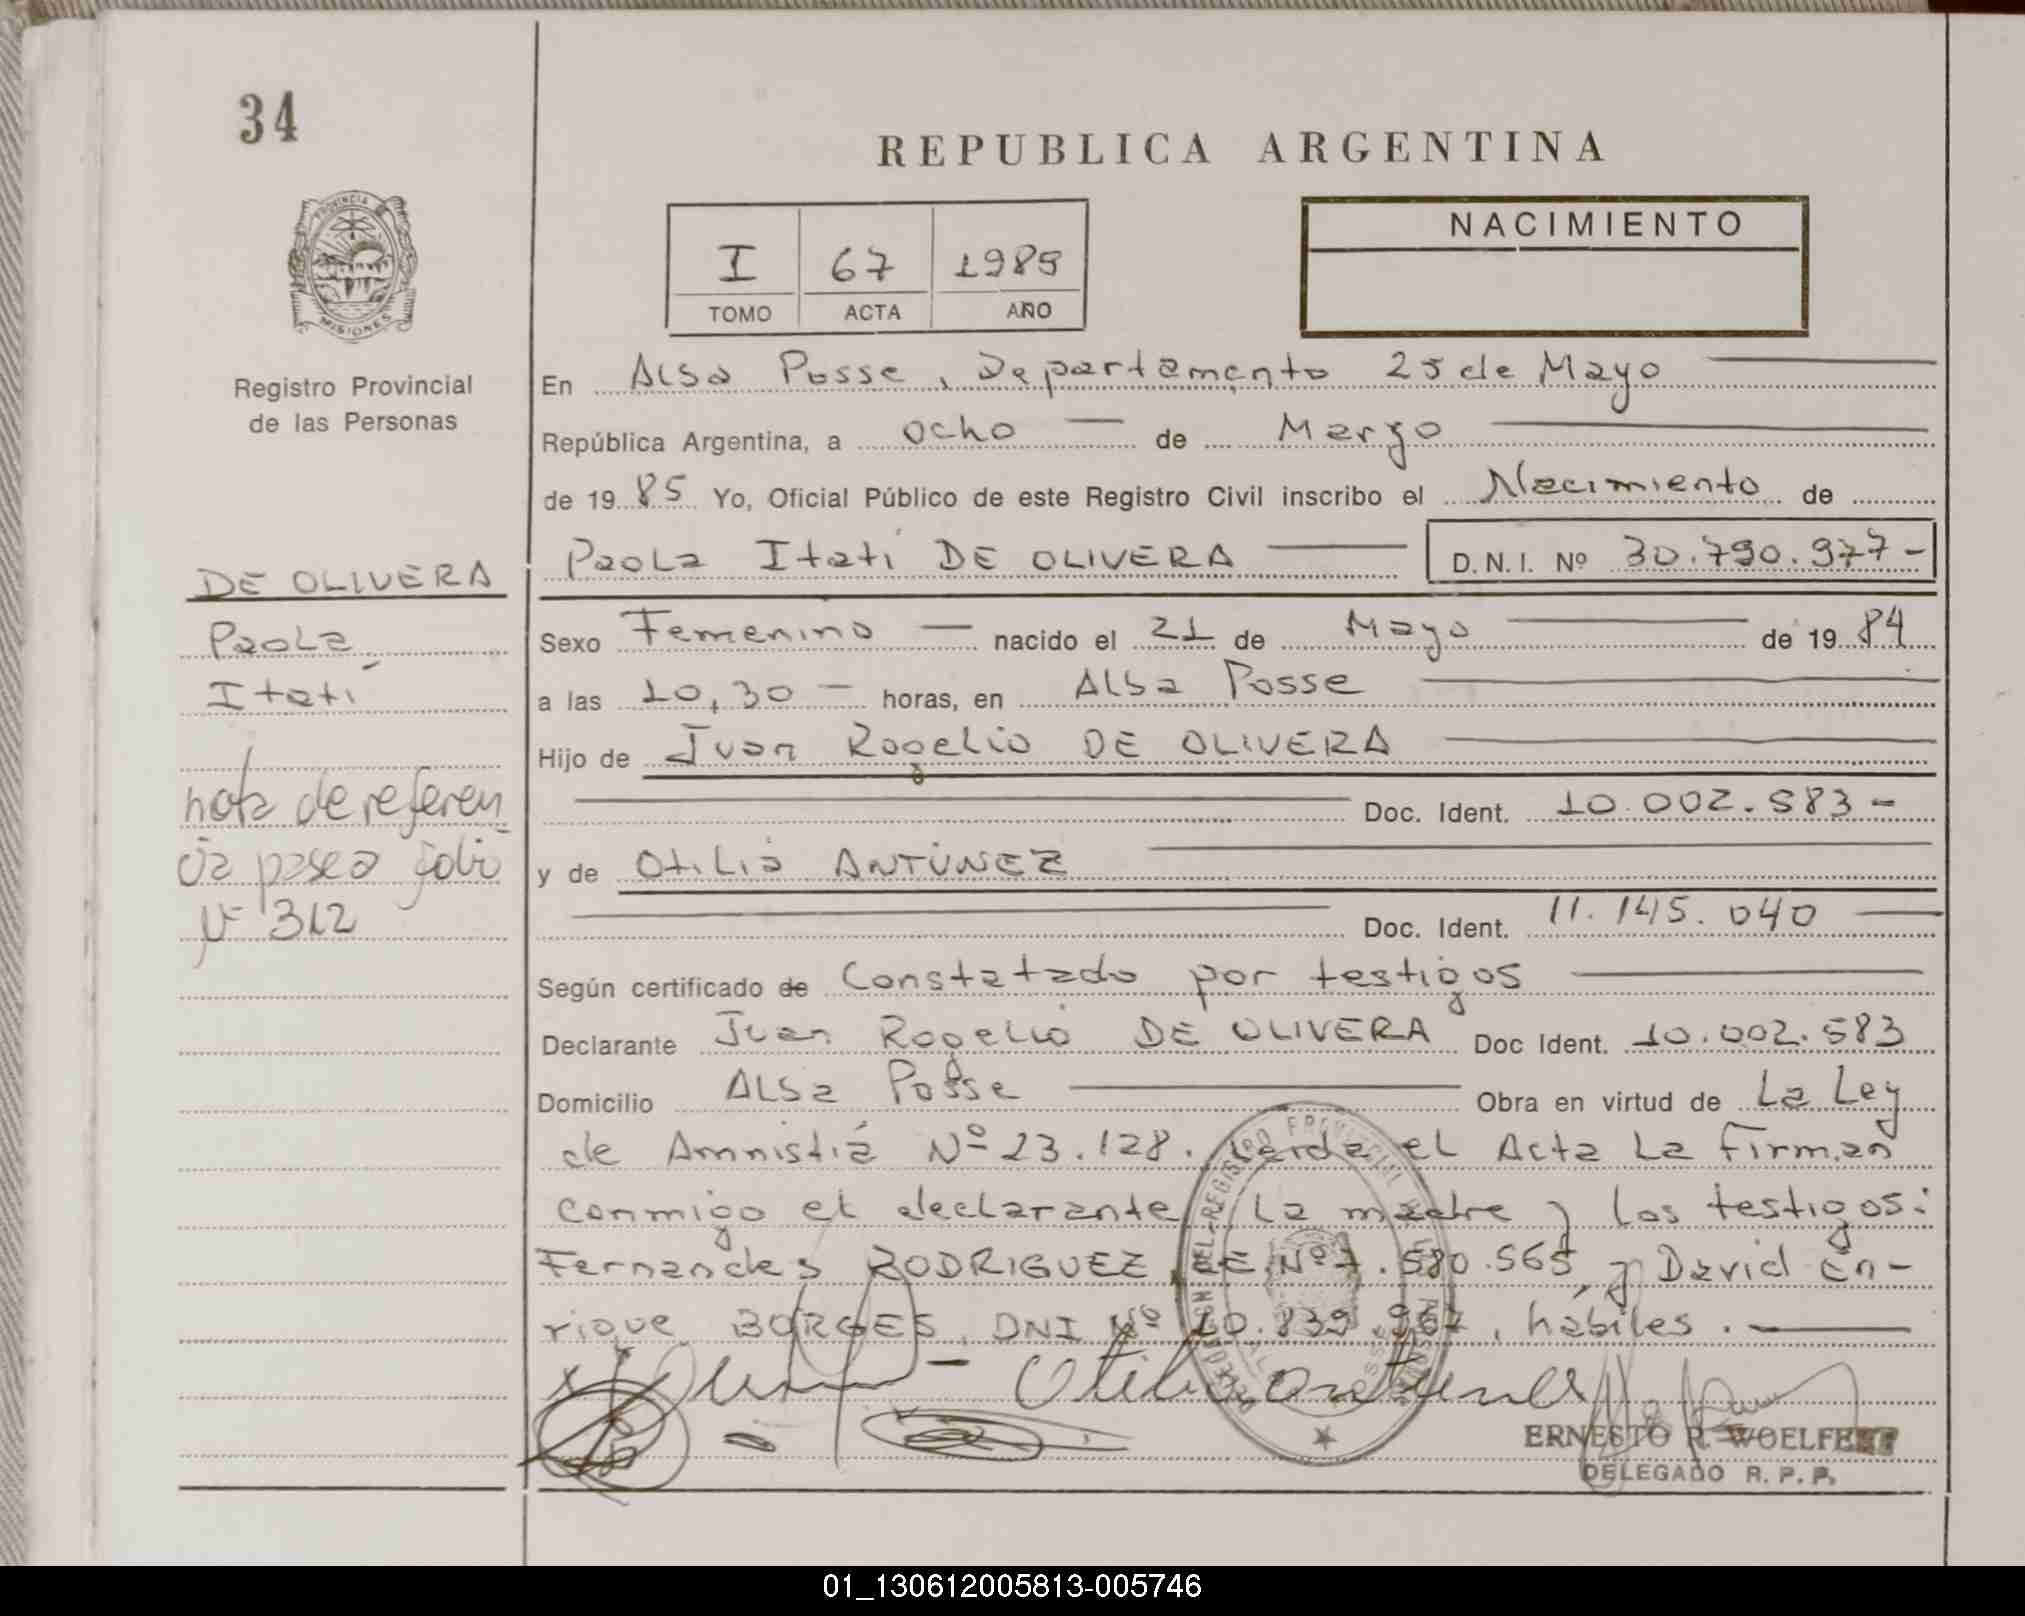 34
REPUBLICA ARGENTINA
PROVINCIA DE
MISIONES
Registro Provincial
de las Personas
I 67 1985
TOMO ACTA AÑO
NACIMIENTO
En Alba Posse, Departamento 25 de Mayo
República Argentina, a ocho de Marzo
de 1985 Yo, Oficial Público de este Registro Civil inscribo el Nacimiento de
Paola Itatí DE OLIVERA D.N.I. Nº 30.790.977-
DE OLIVERA
Paola
Itatí
nota de referen
cia pasa a folio
Nº 312
Sexo Femenino nacido el 21 de Mayo de 1984
a las 10,30 horas, en Alba Posse
Hijo de Juan Rogelio DE OLIVERA
Doc. Ident. 10.002.583-
y de Otilia ANTÚNEZ
Doc. Ident. 11.145.040
Según certificado de Constatado por testigos
Declarante Juan Rogelio DE OLIVERA Doc Ident. 10.002.583
Domicilio Alba Posse Obra en virtud de La Ley
de Amnistía Nº 23.128. Leída el Acta la firman
conmigo el declarante, la madre y los testigos:
Fernandes RODRIGUEZ, LE Nº 7.580.565, y David En-
rique BORGES, DNI Nº 10.839.967, hábiles.
Otilia Antunez
ERNESTO R. WOELFERT
DELEGADO R. P. P.
01_130612005813-005746